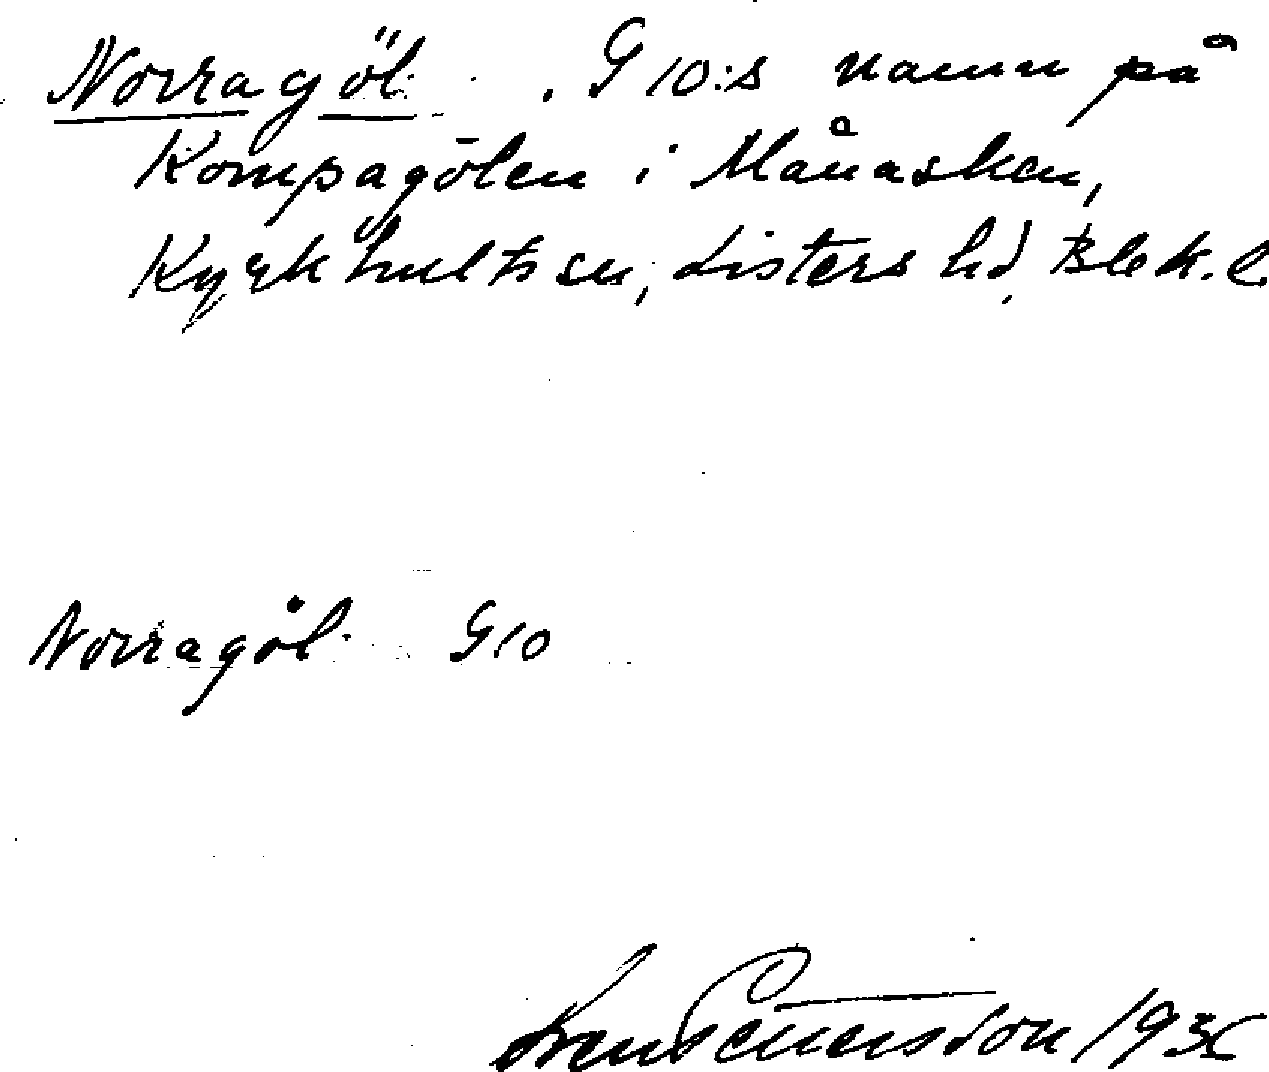 Norragöl . G 10:s namn på
Kompagölen i Månasken,
Kyrkhults sn, Listers hd, Blek. l.
Norragöl G10
Sven Pettersson 193